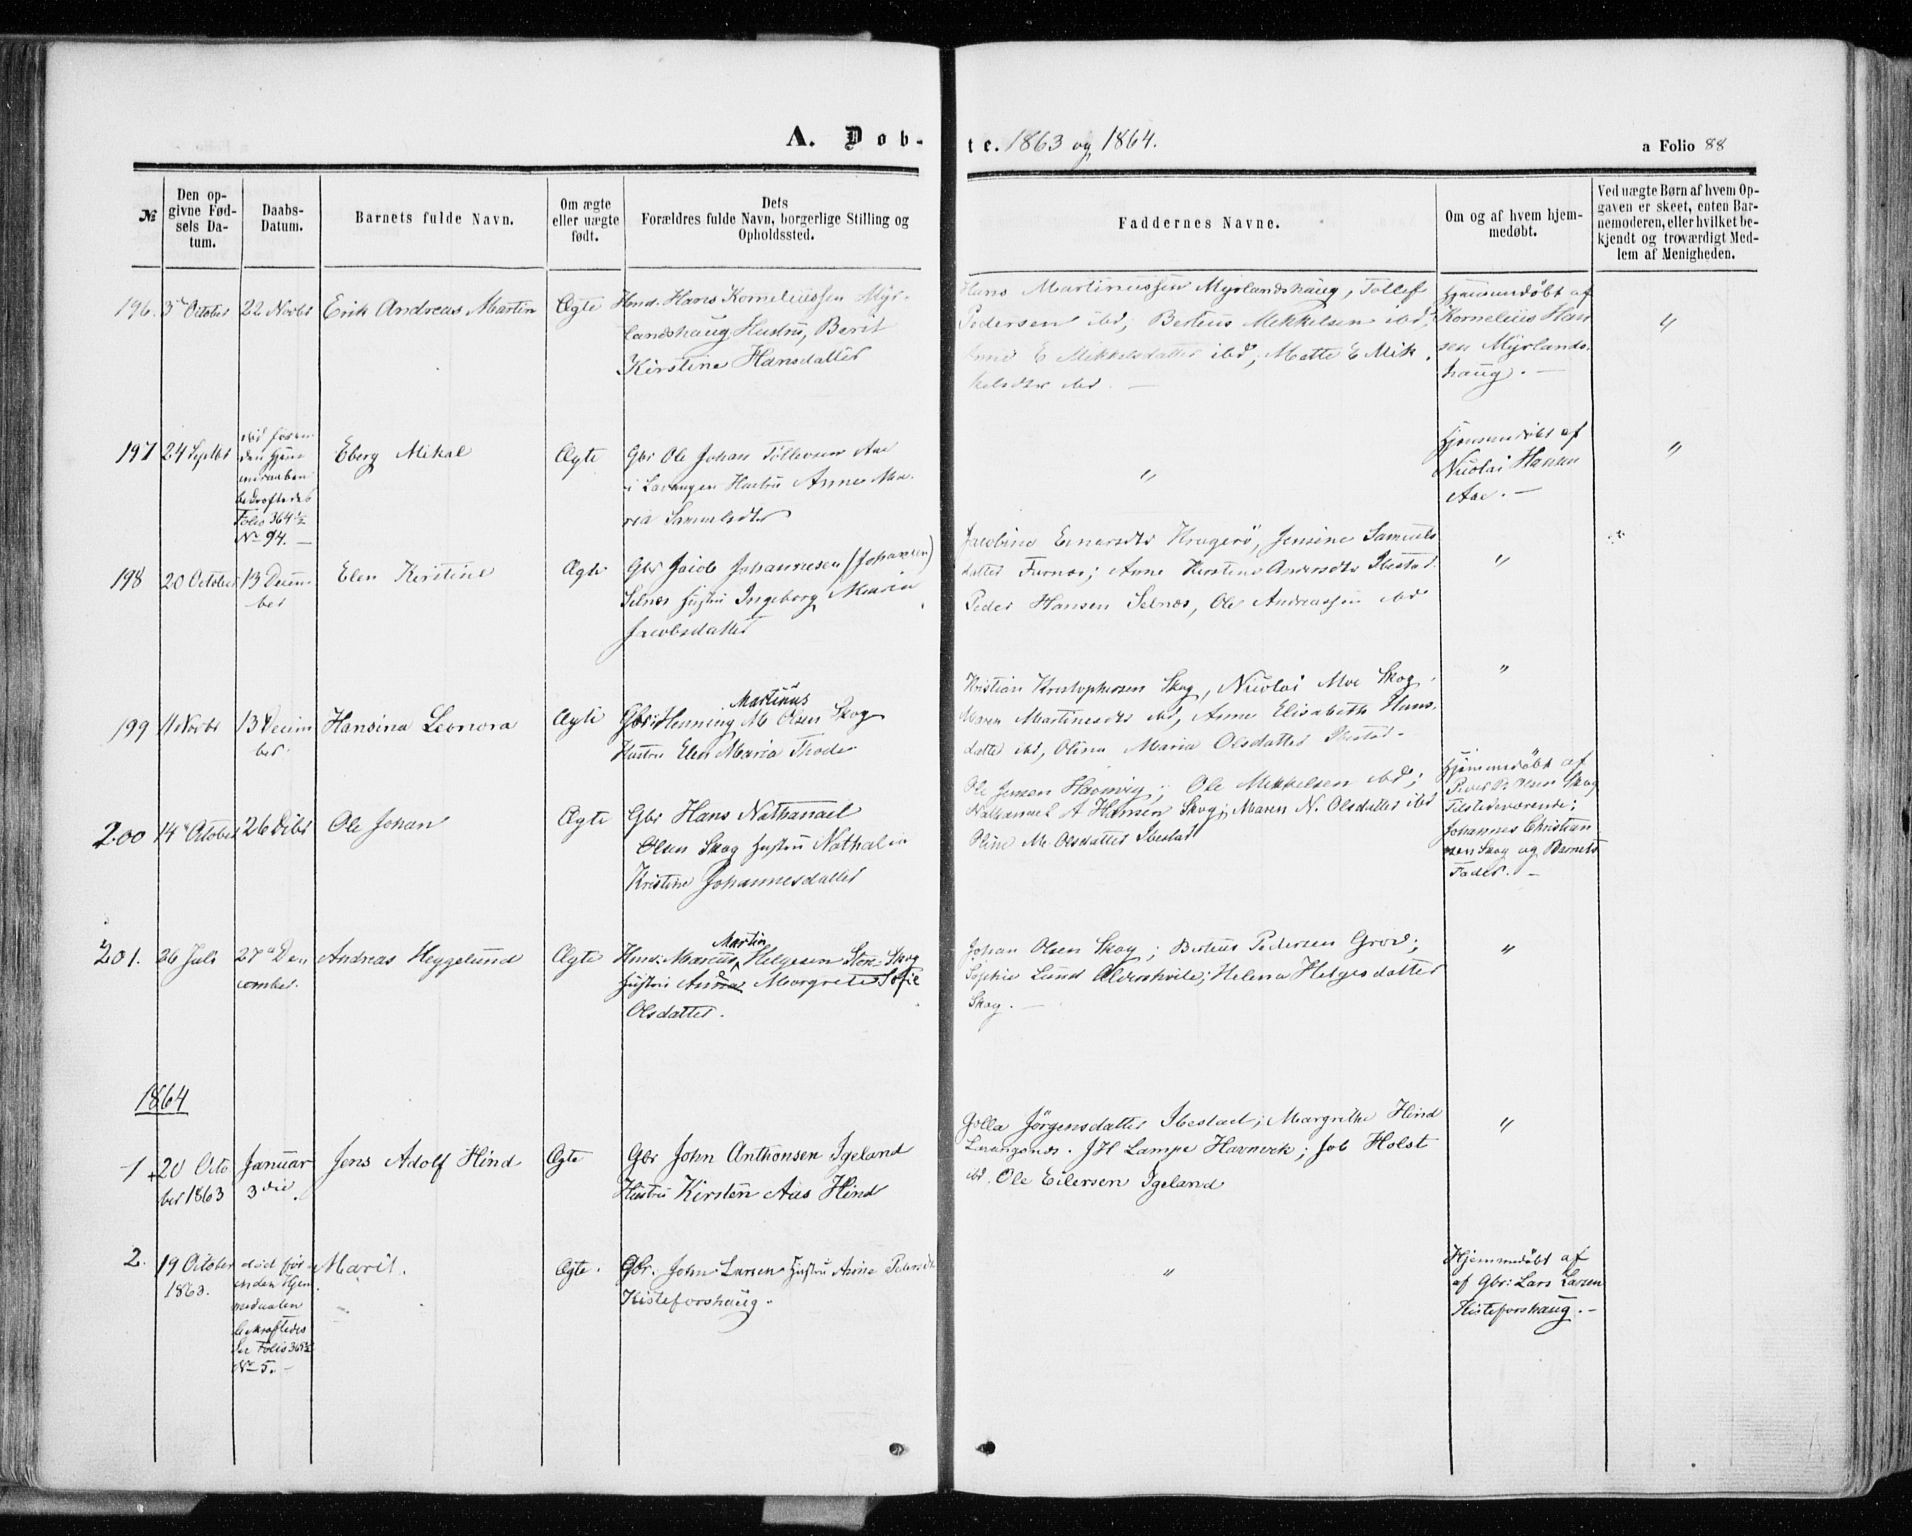 A. Døb-
te. 1863 og 1864.
a Folio 88
№
Den op-
givne Fød-
sels Da-
tum.
Daabs-
Datum.
Barnets fulde Navn.
Om ægte
eller uægte
født.
Dets
Forældres fulde Navn, borgerlige Stilling og
Opholdssted.
Faddernes Navne.
Om og af hvem hjem-
medøbt.
Ved uægte Børn af hvem Op-
gaven er skeet, enten Bar-
nemoderen, eller hvilket be-
kjendt og troværdigt Med-
lem af Menigheden.
196. 3die October 22 Novbr Erik Andreas Martin Ægte Hmd. Hans Korneliussen Myr-
landshaug Hustru, Berit
Kirstine Hansdatter
Hans Martinussen Myrlandshaug, Tollef
Pedersen ibd, Berteus Mikkelsen ibd,
E Mikkelsdatter ibd, Mette E Mik
kelsdtr ibd. —
Hjemmedøbt af
Kornelius Han
sen Myrlands-
haug. —
"
197 24 Septbr
bekræftedes
Folio 364½
No 94. —
Eberg Mikal Ægte Gbr Ole Johan Tollevsen Aae
i Lavangen Hustru Anne Ma-
ria Samuelsdtr
"
Hjemmedøbt af
Nicolai Hansen
Aae. —
"
198 20 October 13 Decem
ber
Elen Kirstine Ægte Gbr Jacob Johannesen (Johansen)
Selnæs Hustru Ingeborg Maria
Jacobsdatter
Jacobine Einersdtr Kragerö, Jensine Samuels
datter Furnæs; Anne Kirstine Andersdtr Ibestad
Peder Hansen Selnæs, Ole Andreassen ibd
"
199 11 Novbr 13 Decem
ber.
Hansina Leonora Ægte Martinus
Gbr: Henning M Olsen Skog
Hustru Elen Maria Thode
Kristian Kristophersen Skog, Nicolai Moe Skog
Maren Martinesdtr ibd, Anne Elisabeth Hans-
datter ibd, Olina Maria Olsdatter Ibestad.
"
200 14de October 26 Dcbr Ole Johan Ægte Gbr Hans Nathanael
Olsen Skog Hustru Nathalia
Kristine Johannesdatter
Ole Jensen Havnvig; Ole Mikkelsen ibd;
Nathanael A Hansen Skog; Maren N. Olsdatter ibd
Oline M. Olsdatter Ibestad
Hjemmedøbt af
Peder P. Olsen Skog
Tilstedeværende:
Johannes Christian
sen Skog og Barnets
Fader. —
201. 26 Juli 27de Dec
ember.
Andreas Heggelund Ægte Martin
Hmd: Marcus Helgesen Sten-Skog
Hustru Anna Margrete Sofie
Olsdatter.
Johan Olsen Skog; Berteus Pedersen Grov;
Sophie Lund Aldershvile; Helena Helgesdatter
Skog. —
"
1864
1 20 Octo
ber 1863
Januar
3die.
Jens Adolf Hind Ægte Gbr John Anthonsen Igeland
Hustru Kirsten Aas Hind
Jolla Jörgensdatter Ibestad; Margrethe Hind
Lavangsnæs. JH Lampe Havnvik; Job Holst
ibd. Ole Eilersen Igeland
"
2. 19 October
1863.
død för-
inden Hjem
medaaben
bekræftedes
See Folio 365½
No 5. —
Marit. Ægte. Gbr. John Larsen Hustru Anne Pedersdtr
Kisteforshaug.
"
Hjemmedøbt af
af Gbr: Lars Larsen
Kisteforshaug. —